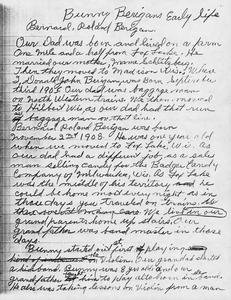 Bunny Berigans Early life
Bernard, Roland Berigan
Our Dad was born and lived on a farm
One mile and a half from Fox Lake. He
married our mother, Mame Schlitzberg.
Then they moved to Madison Wis, Where
I Donald John Berigan was born September
third 1905 Our dad was baggage man
on North Western trains We then moved
to Hilbert Wis as our dad had that run
as baggage man on that line.
Bernard Roland Berigan was born
November 2nd 1908. He was one year old
when we moved to Fox Lake, Wis. As
our dad had a different job, as a sales
man selling candy for the
Company of Milwaukee, Wis. As Fox Lake
was the middle of his territory and he
could be home most every night as in
those days you traveled on trains.
our
grand parents home as stated, Our
grandfather was band master in those
days.
Bunny started out first at playing
Violin. Our grandad started
a kids band. Bunny was 8 years old and our
grandfather him to play alto horn in band.
He also was taking lessons on Violin from a man